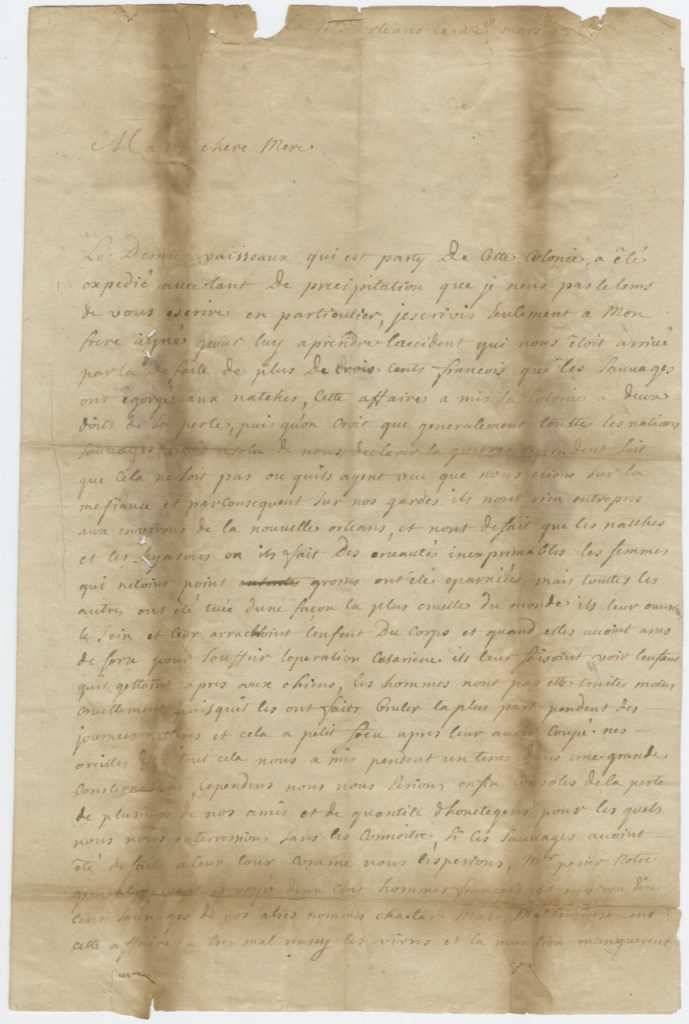 orleans le 22e mars
Ma chere Mere
Le Dernie vaisseaux qui est party De Cette Colonie, a été
expedié avec tant De precipitation que je neus pas le tems
de vous escrire en particulier, jescrivis Seulement a Mon
frere ayné pour luy aprendre laccident qui nous étoit arrivé
par la Defaite de plus De trois Cents francois que les Sauvages
ont égorgé aux natches, Cette affaire a mis la Colonie a deux
doits de Sa perte, puis quon croit que generalement touttes les nations
Sauvages de nous declarer la guerre Soit
que Cela ne Soit pas ou quils ayent veu que nous etions Sur la
mefiance et par consequent Sur nos gardes ils nont rien entrepris
aux environs de la nouvelle orleans, et nont defait que les natches
et les ou ils fait Des cruautés inexprimables les femmes
qui netoint point grosses ont été eparniées mais touttes les
autres ont été tuée dune façon la plus cruelle Du monde ils leur ouvroint
le Sein et leur arrachoint lenfent Du Corps et quand elles avoint asses
de force pour Souffrir loperation Cesariene ils leur faisoint voir lenfant
quil gettoint apres aux chiens, les hommes nont pas etté traités moins
cruellement puisquil les ont fait bruler la plus part pendent des
journées et cela a petit feu apres leur avoir Coupé nes
oreilles tout cela nous a mis pendent un tems dans une grande
Consternation, Cependens nous nous Serions enfin Consoles de la perte
de plusieurs de nos amis et de quantité dhonetegens pour les quels
nous nous interessions Sans les Connoitre, Si Ces Sauvages avoint
été defait a leur tour comme nous lesperions; Mr perier Notre
general envoyé deux Cens hommes francois et environ
Cent Sauvages de nos aliés nommés chactas. Mais Malheureusement
cette affaire a tres mal reussy les vivres et la munition manquerent